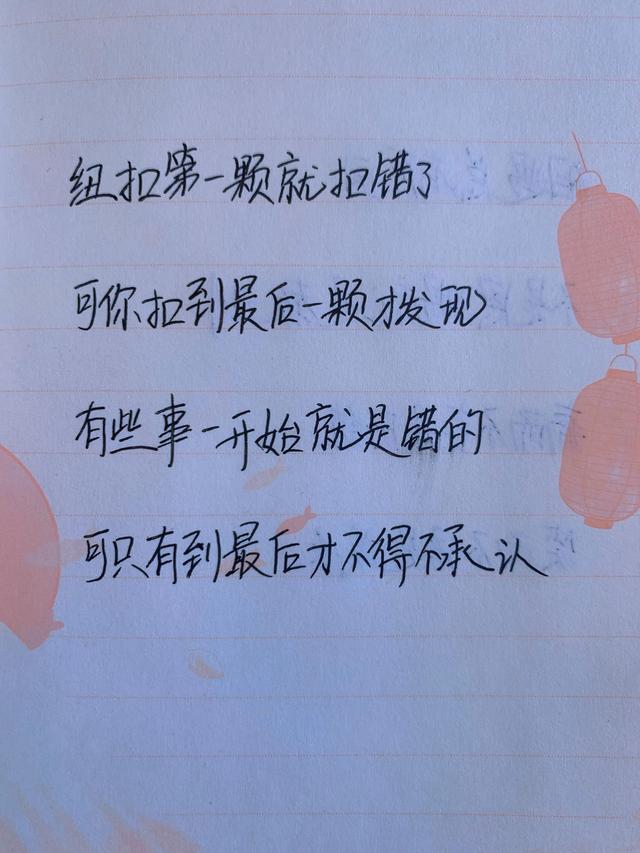 纽扣第一颗就扣错了
可你扣到最后一颗才发现
有些事一开始就是错的
可只有到最后才不得不承认